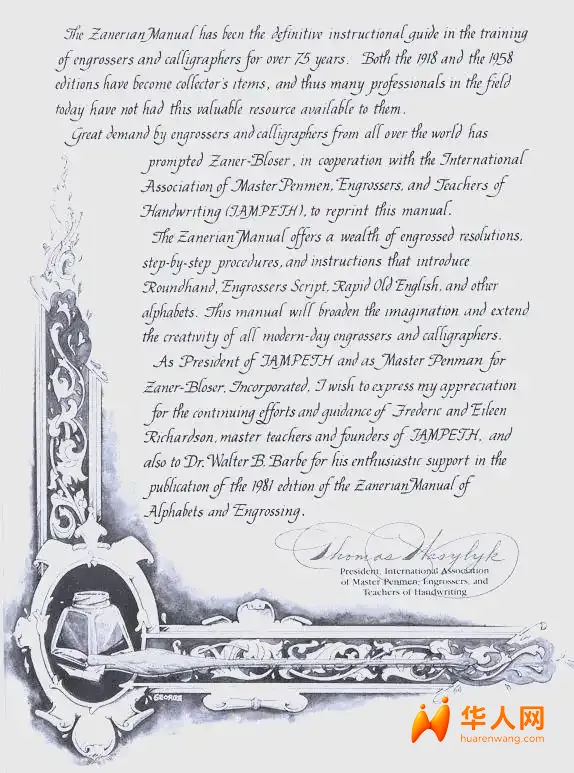 The Zanerian Manual has been the definitive instructional guide in the training
of engrossers and calligraphers for over 75 years. Both the 1918 and the 1958
editions have become collector's items, and thus many professionals in the field
today have not had this valuable resource available to them.
Great demand by engrossers and calligraphers from all over the world has
prompted Zaner-Bloser, in cooperation with the International
Association of Master Penmen, Engrossers, and Teachers of
Handwriting (IAMPETH), to reprint this manual.
The Zanerian Manual offers a wealth of engrossed resolutions,
step-by-step procedures, and instructions that introduce
Roundhand, Engrossers Script, Rapid Old English, and other
alphabets. This manual will broaden the imagination and extend
the creativity of all modern-day engrossers and calligraphers.
As President of IAMPETH and as Master Penman for
Zaner-Bloser, Incorporated, I wish to express my appreciation
for the continuing efforts and guidance of Frederic and Eileen
Richardson, master teachers and founders of IAMPETH, and
also to Dr. Walter B. Barbe for his enthusiastic support in the
publication of the 1981 edition of the Zanerian Manual of
Alphabets and Engrossing.
Thomas Wasylyk
President, International Association
of Master Penmen, Engrossers, and
Teachers of Handwriting
GEORGE
华人网
huarenwang.com